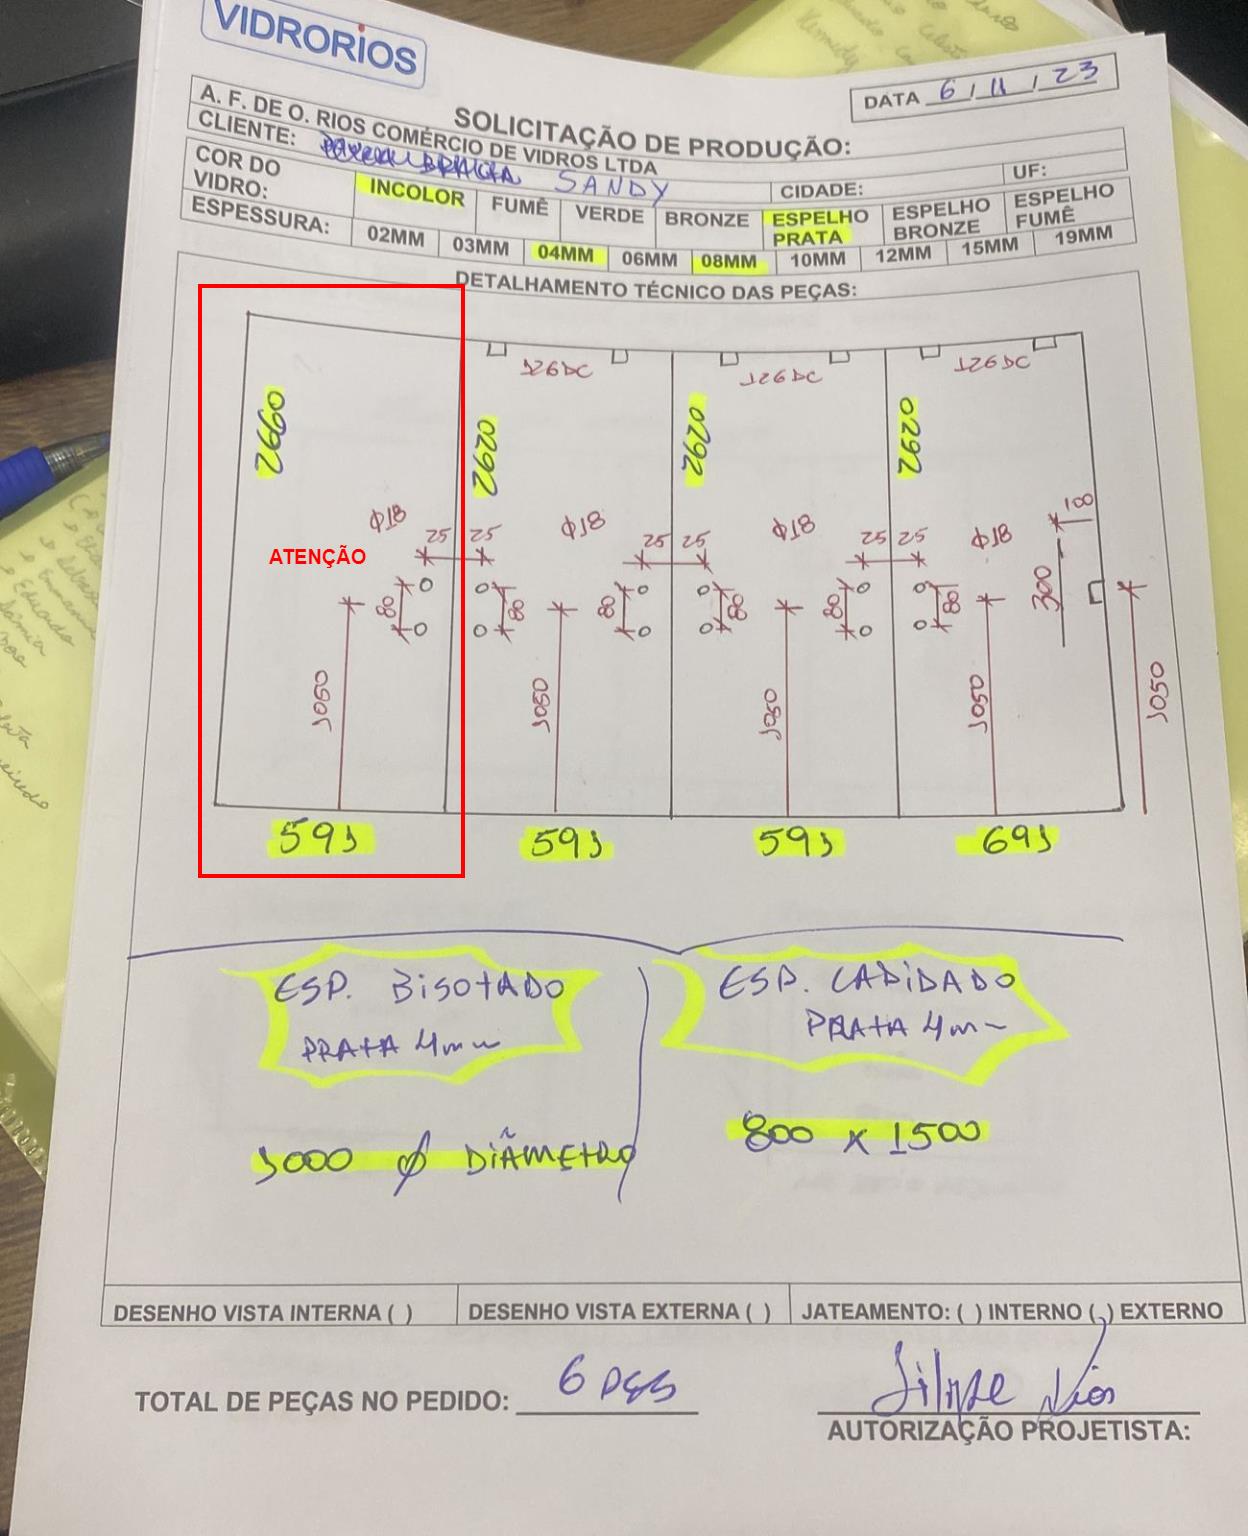 VIDRORIOS
DATA 6 / 11 / 23
SOLICITAÇÃO DE PRODUÇÃO:
A. F. DE O. RIOS COMÉRCIO DE VIDROS LTDA
CLIENTE: SANDY
CIDADE: UF:
COR DO VIDRO: INCOLOR FUMÊ VERDE BRONZE ESPELHO PRATA ESPELHO BRONZE ESPELHO FUMÊ
ESPESSURA: 02MM 03MM 04MM 06MM 08MM 10MM 12MM 15MM 19MM
DETALHAMENTO TÉCNICO DAS PEÇAS:
126 DC 126 DC 126 DC
2660 2620 2620 2620
Φ18 25 25 Φ18 25 25 Φ18 25 25 Φ18 100
ATENÇÃO
80 80 80 80 80 80 300
1050 1050 1050 1050 1050
591 591 591 691
ESP. BISOTADO
PRATA 4mm
1000 Ø DIÂMETRO
ESP. LAPIDADO
PRATA 4mm
800 X 1500
DESENHO VISTA INTERNA ( ) DESENHO VISTA EXTERNA ( ) JATEAMENTO: ( ) INTERNO ( ) EXTERNO
TOTAL DE PEÇAS NO PEDIDO: 6 PÇS
Filipe Rios
AUTORIZAÇÃO PROJETISTA: